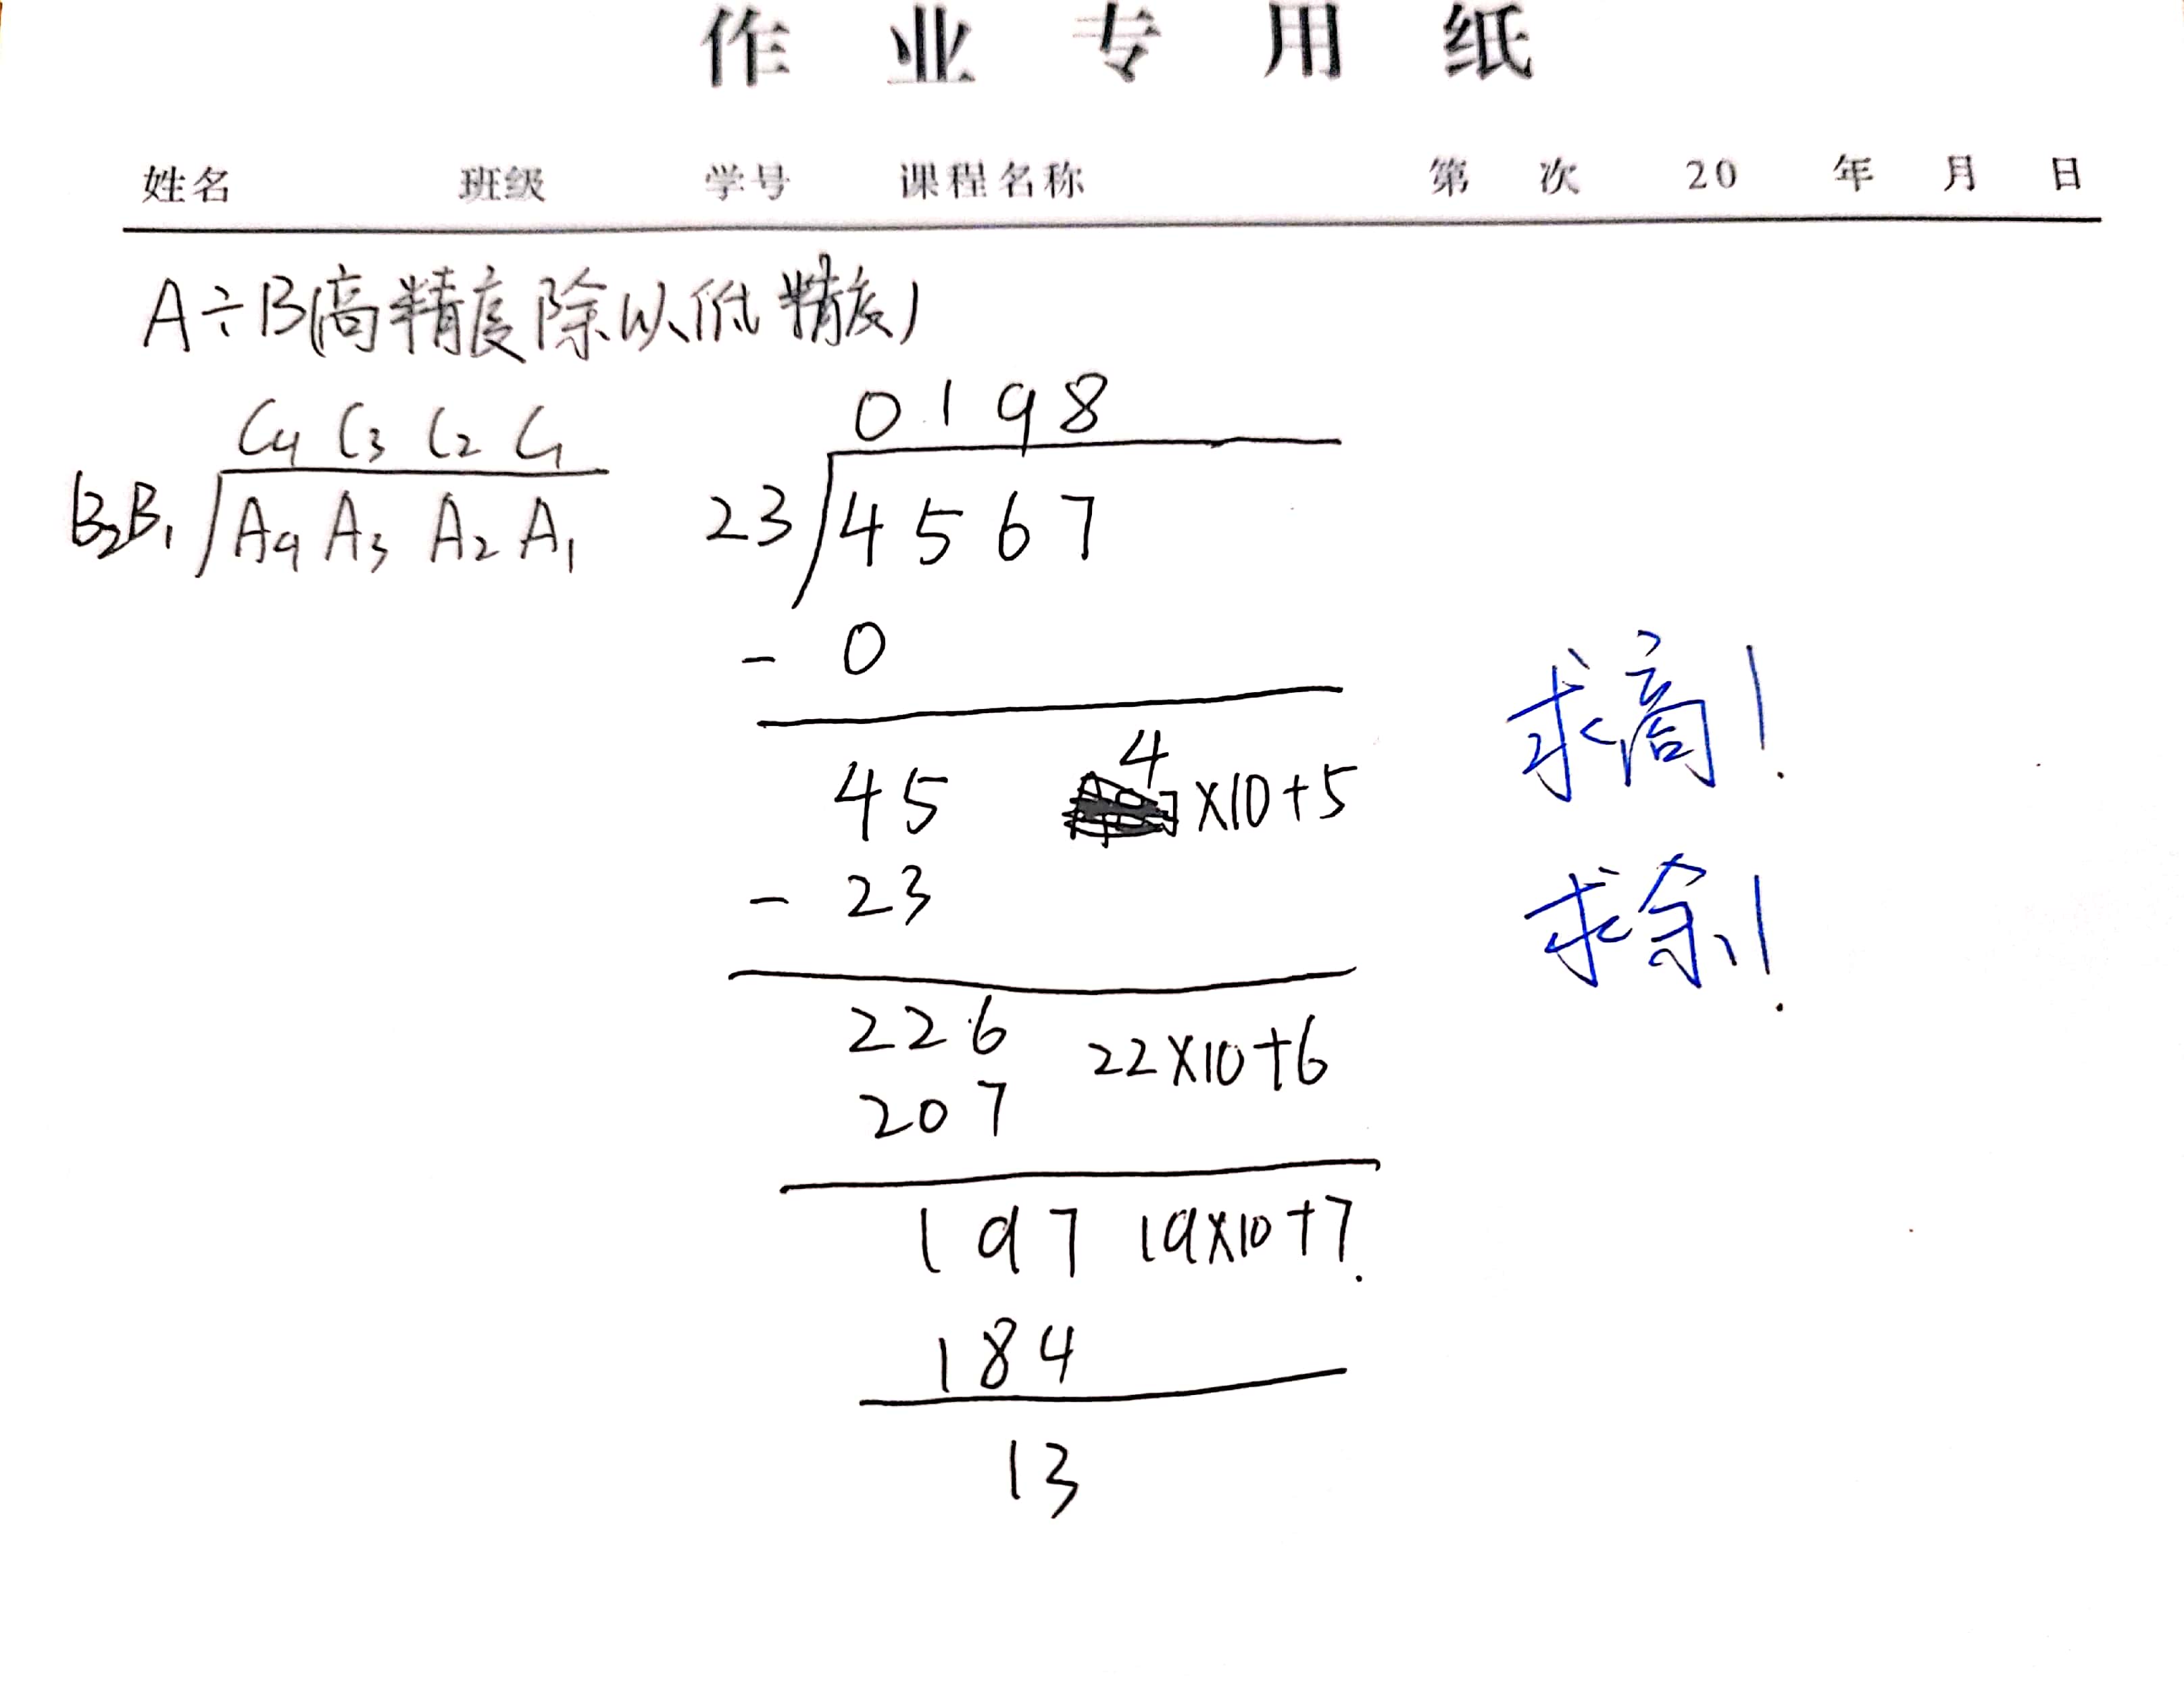 作业专用纸
姓名 班级 学号 课程名称 第 次 20 年 月 日
A÷B(高精度除以低精度)
C4 C3 C2 C1
B2B1 A4 A3 A2 A1
0198
23 4567
- 0
45 4×10+5
- 23
226 22×10+6
207
197 19×10+7
184
13
求商!
求余!